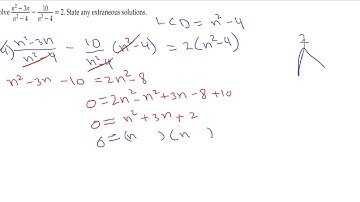 olve n²−3n/n²−4 − 10/n²−4 = 2. State any extraneous solutions.
LCD = n²-4
n²-3n/n²-4 - 10/n²-4 (n²-4) = 2(n²-4)
n²-3n -10 = 2n²-8
0 = 2n²-n²+3n-8+10
0 = n²+3n+2
0 = (n )(n )
2